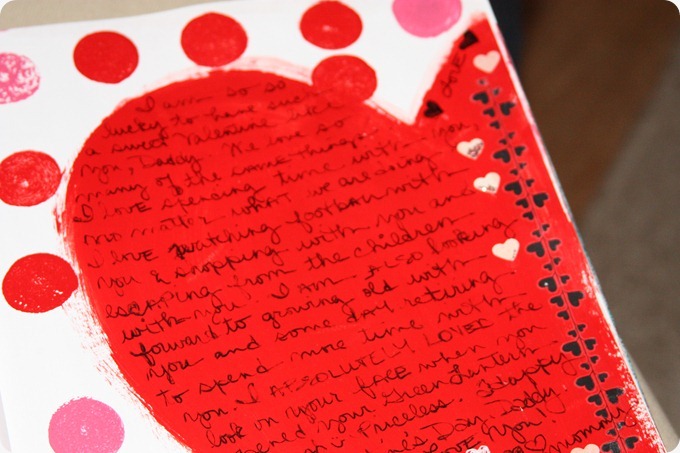 I am so so
lucky to have such
a sweet Valentine like
you, Daddy. We love so
many of the same things.
I LOVE spending time with you
no matter WHAT we are doing.
I LOVE watching football with
you & shopping with you and
escaping from the children
with you. I AM ALSO looking
forward to growing old with
you and some DAY retiring
to spend more time with
you. I ABSOLUTELY LOVED the
look on your FACE when you
opened your Green Lantern
Priceless. Happy
Day, Daddy
LOVE you!
Mommy
LOVE